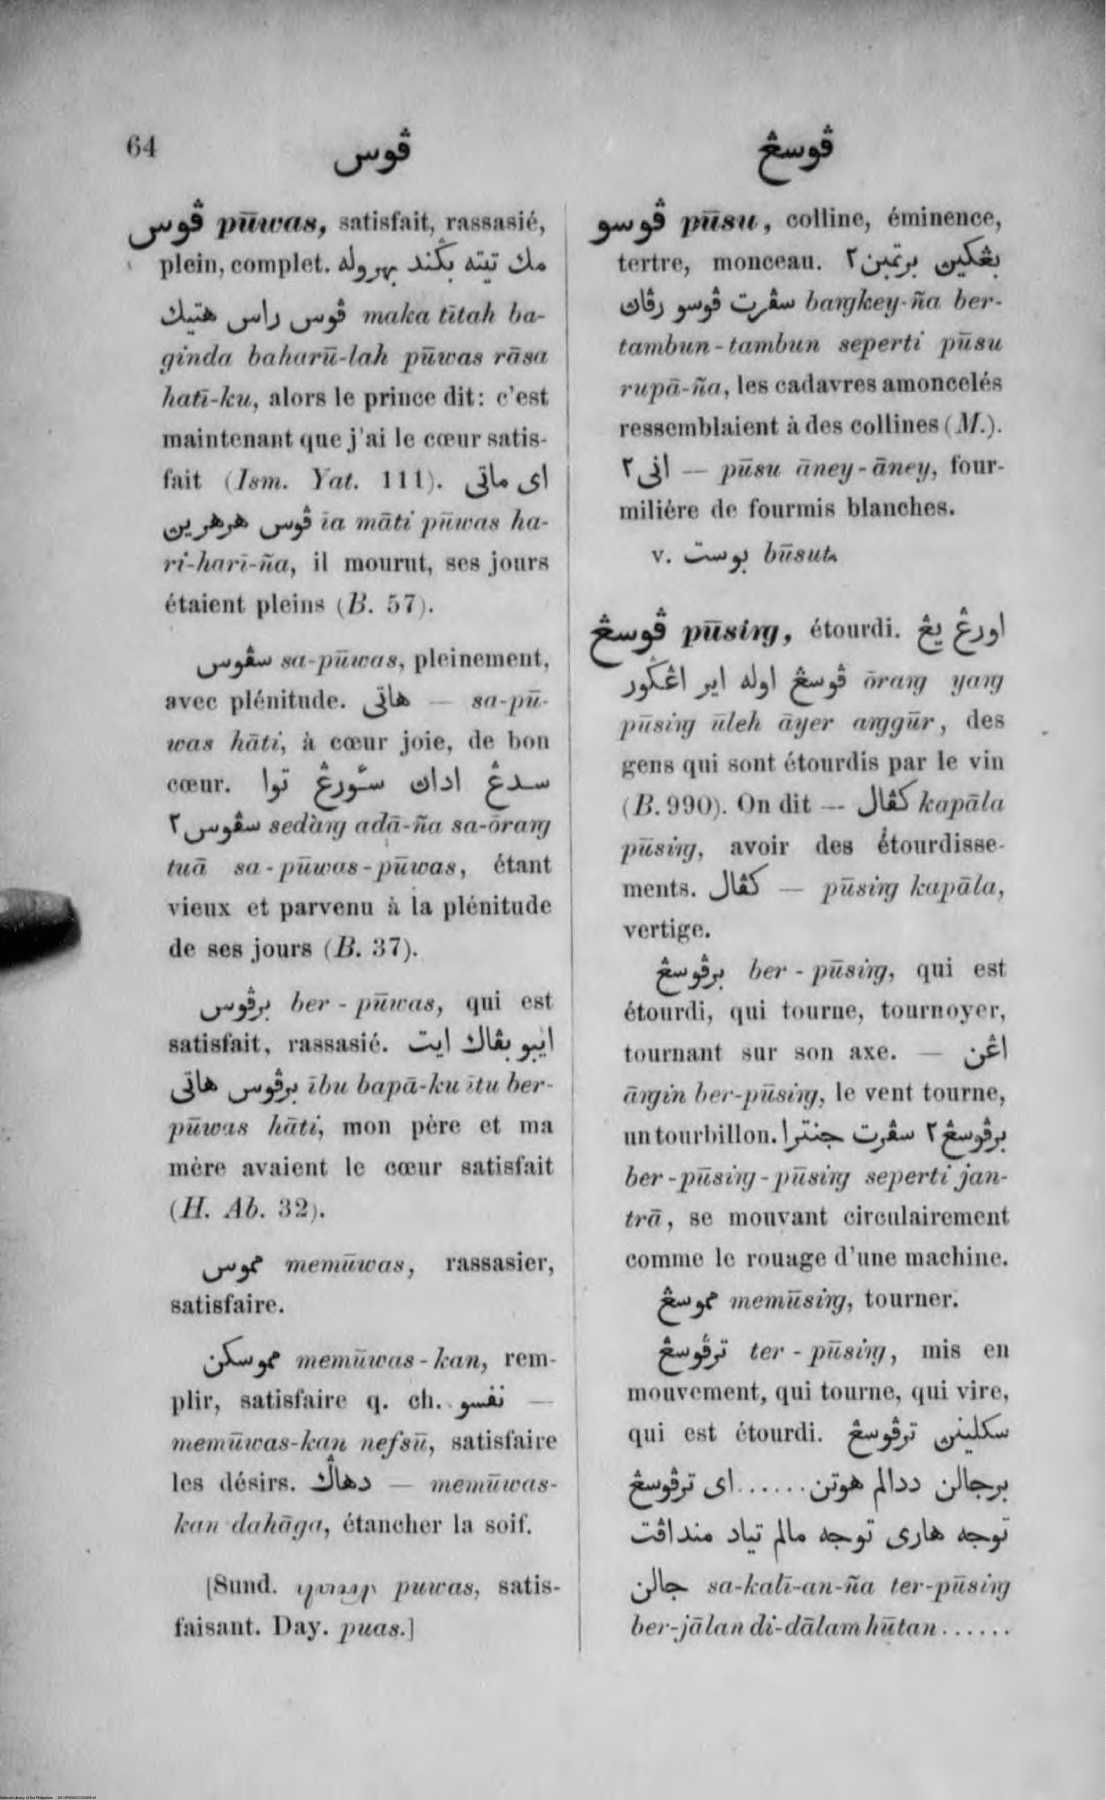 64
ڤوس
ڤوسڠ
ڤوس pūwas, satisfait, rassasié,
plein, complet. مك تيته بݢند بهروله
ڤوس راس هتيك maka tītah ba-
ginda baharū-lah pūwas rāsa
hatī-ku, alors le prince dit: c'est
maintenant que j'ai le cœur satis-
fait (Ism. Yat. 111). اى ماتى
ڤوس هرهرين īa māti pūwas ha-
ri-harī-ña, il mourut, ses jours
étaient pleins (B. 57).
سڤوس sa-pūwas, pleinement,
avec plénitude. هاتى — sa-pū-
was hāti, à cœur joie, de bon
cœur. سدڠ اداڽ سٔورڠ توا
سڤوس٢ sedàng adā-ña sa-ōrang
tuā sa-pūwas-pūwas, étant
vieux et parvenu à la plénitude
de ses jours (B. 37).
برڤوس ber-pūwas, qui est
satisfait, rassasié. ايبو بڤاك ايت
برڤوس هاتى ību bapā-ku ītu ber-
pūwas hāti, mon père et ma
mère avaient le cœur satisfait
(H. Ab. 32).
مموس memūwas, rassasier,
satisfaire.
مموسكن memūwas-kan, rem-
plir, satisfaire q. ch. نفسو —
memūwas-kan nefsū, satisfaire
les désirs. دهاݢ — memūwas-
kan dahāga, étancher la soif.
[Sund. puwas, satis-
faisant. Day. puas.]
ڤوسو pūsu, colline, éminence,
tertre, monceau. بڠكين برتمبن٢
سڤرت ڤوسو رڤاڽ bangkey-ña ber-
tambun-tambun seperti pūsu
rupā-ña, les cadavres amoncelés
ressemblaient à des collines (M.).
انى٢ — pūsu āney-āney, four-
milière de fourmis blanches.
v. بوست būsut.
ڤوسڠ pūsing, étourdi. اورڠ يڠ
ڤوسڠ اوله اير اڠݢور ōrang yang
pūsing ūleh āyer anggūr, des
gens qui sont étourdis par le vin
(B. 990). On dit — كڤال kapāla
pūsing, avoir des étourdisse-
ments. كڤال — pūsing kapāla,
vertige.
برڤوسڠ ber-pūsing, qui est
étourdi, qui tourne, tournoyer,
tournant sur son axe. — اڠن
āngin ber-pūsing, le vent tourne,
un tourbillon. برڤوسڠ٢ سڤرت جنترا
ber-pūsing-pūsing seperti jan-
trā, se mouvant circulairement
comme le rouage d'une machine.
مموسڠ memūsing, tourner.
ترڤوسڠ ter-pūsing, mis en
mouvement, qui tourne, qui vire,
qui est étourdi. سكلينن ترڤوسڠ
برجالن ددالم هوتن......اى ترڤوسڠ
توجه هارى توجه مالم تياد منداڤت
جالن sa-kalī-an-ña ter-pūsing
ber-jālan di-dālam hūtan......